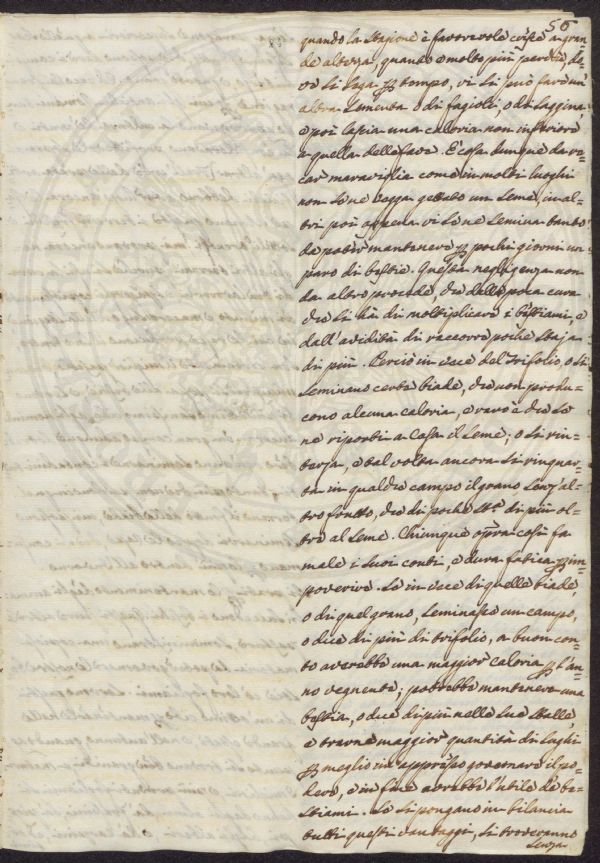 56
quando la stagione è favorevole cresce a gran=
de altezza, quando o molto più perde, do=
ve si sega p tempo, vi si può fare un'
altra sementa o di fagioli, o di saggina,
e poi lascia una caloria non inferiore
a quella delle fave. È cosa dunque da re=
car maraviglia come in molti luoghi
non se ne vegga gettato un seme, in al=
tri poi appena vi se ne semina tanto
da poter mantenere p pochi giorni un
paro di bestie. Questa negligenza non
da altro procede, che dalla poca cura
che si hà di moltiplicare i bestiami, e
dall'avidità di raccorre poche staja
di più. Perciò in vece del Trifolio, o si
seminano certe biade, che non produ=
cono alcuna caloria, e raro è che se
ne riporti a Casa il seme; o si rin=
terza, e tal volta ancora si rinquar=
ta in qualche campo il grano senz'al=
tro frutto, che di poche st.a di più ol=
tre al seme. Chiunque opra così fa
male i suoi conti, e dura fatica p im=
poverire. Se in vece di quelle biade,
o di quel grano, seminasse un campo,
o due di più di trifolio, a buon con=
to averebbe una maggior caloria p l'an=
no vegnente; potrebbe mantenere una
bestia, o due di più nelle sue stalle,
e trarne maggior quantità di sughi
p meglio in appresso governare il po=
dere, e in fine avrebbe l'utile de be=
stiami. Se si pongano in bilancia
tutti questi vantaggi, si troveranno
senza